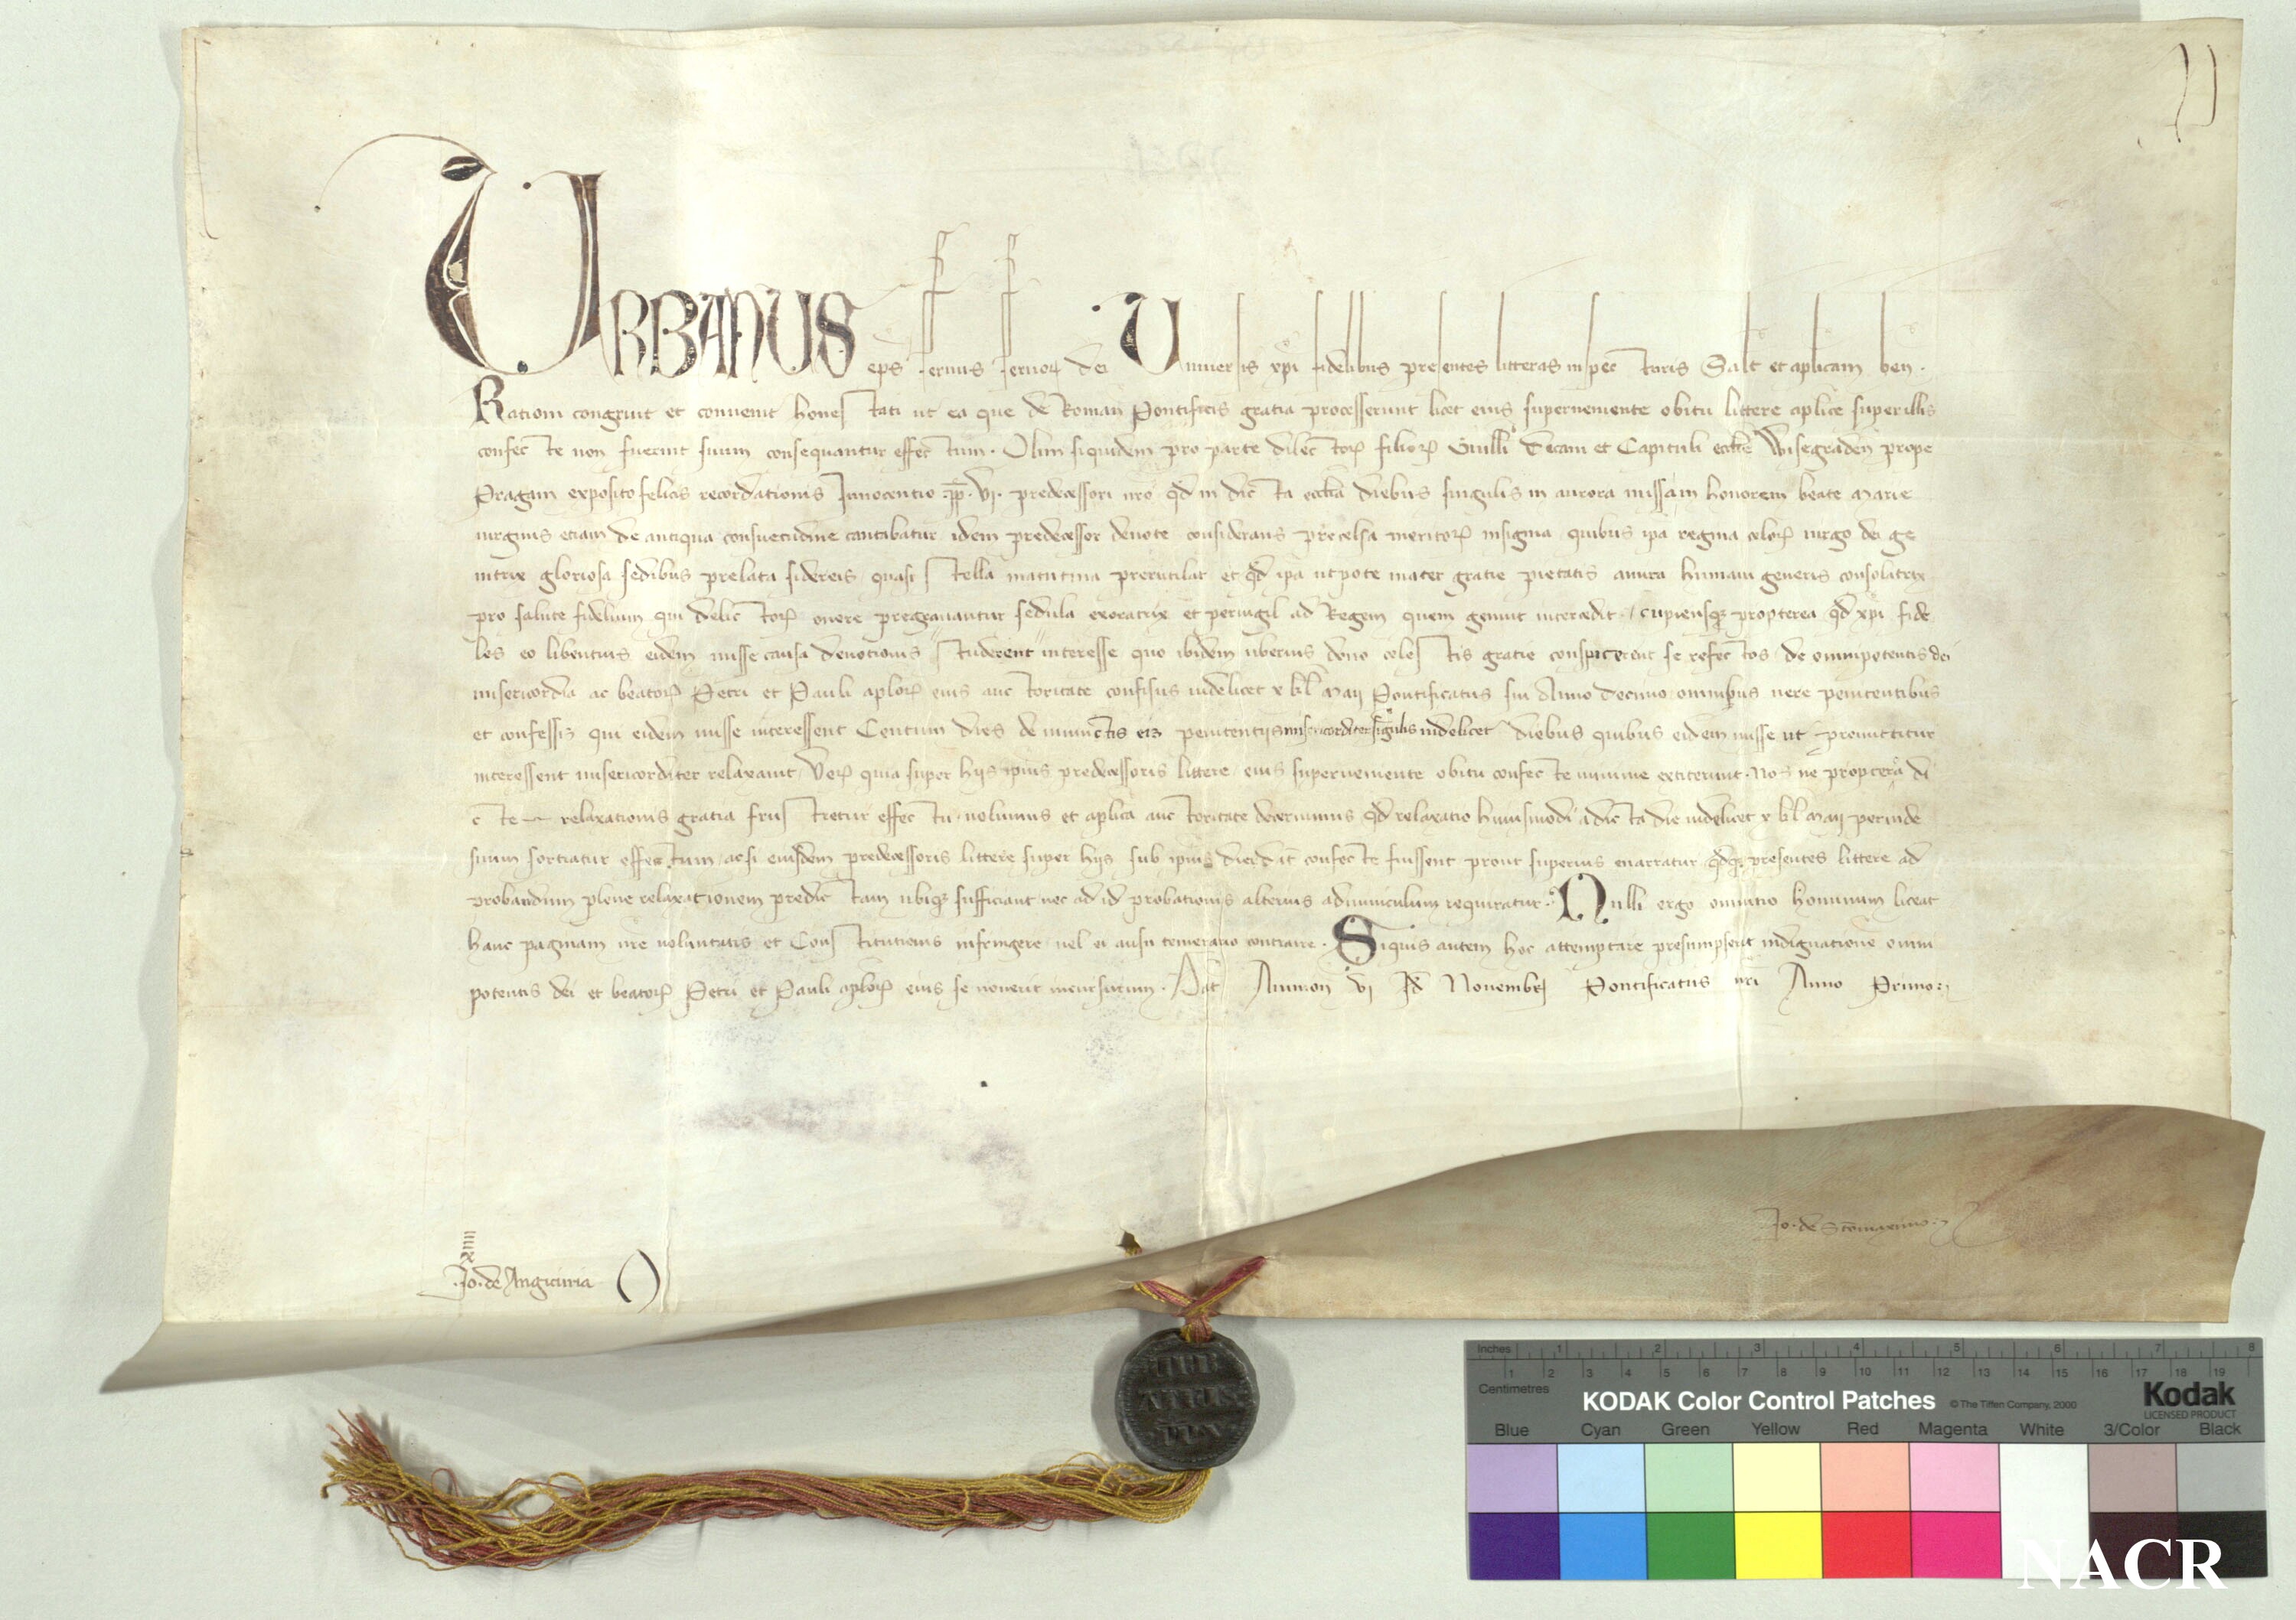 URBANUS ep̄s seruus seruoꝝ dei Uniuersis xp̄i fidelibus presentes litteras inspecturis Salt̄ et aplicam ben̄.
Rationi congruit et conuenit honestati ut ea que de Romani Pontificis gratia processerunt licet eius superueniente obitu littere aplice super illis
confecte non fuerint suum consequantur effectum. Olim siquidem pro parte dilectoꝝ filioꝝ Decani et Capituli eccl̄ie Wisegraden̄ prope
Pragam exposito felicis recordationis Innocentio .pp̄. VI. predecessori nr̄o qd̄ in dicta eccl̄ia diebus singulis in aurora missa in honorem beate Marie
uirginis etiam de antiqua consuetudine cantabatur idem predecessor deuote considerans precelsa meritoꝝ insignia quibus ip̄a regina celoꝝ uirgo dei ge
nitrix gloriosa sedibus prelata sidereis quasi stella matutina prerutilat et qd̄ ip̄a utpote mater gratie pietatis amica humani generis consolatrix
pro salute fidelium qui delictoꝝ onere pregrauantur sedula exoratrix et peruigil ad Regem quem genuit intercedit / cupiensqꝫ propterea qd̄ xp̄i fide
les eo libentius eidem misse causa deuotionis studerent interesse quo ibidem uberius dono celestis gratie conspicerent se refectos de omnipotentis dei
misericordia ac beatoꝝ Petri et Pauli aploꝝ eius auctoritate confisus uidelicet x kl̄ Maij Pontificatus sui Anno decimo omnibus uere penitentibus
et confessis qui eidem misse interessent Centum dies de iniunctis eis penitentijs misericorditer singulis uidelicet diebus quibus eidem misse ut premittitur
interessent misericorditer relaxauit / Veꝝ quia super hijs ip̄ius predecessoris littere eius superueniente obitu confecte minime extiterunt. Nos ne propterea di
cte relaxationis gratia frustretur effectu uolumus et aplica auctoritate decernimus qd̄ relaxatio huiusmodi a dicta die uidelicet x kl̄ Maij perinde
suum sortiatur effectum / acsi eiusdem predecessoris littere super hijs sub ip̄ius diei dat̄ confecte fuissent prout superius enarratur qd̄qꝫ presentes littere ad
probandum plene relaxationem predictam ubiqꝫ sufficiant nec ad id probationis alterius adminiculum requiratur. Nulli ergo omnino hominum liceat
hanc paginam nr̄e uoluntatis et Constitutionis infringere uel ei ausu temerario contraire. Siquis autem hoc attemptare presumpserit indignationem omni
potentis dei et beatoꝝ Petri et Pauli aploꝝ eius se nouerit incursurum. Dat̄ Auinion̄ VI Id̄ Nouembꝝ Pontificatus nr̄i Anno Primo
xiiii
Jo. de Angicuria
URBANUS
PP V
KODAK Color Control Patches © The Tiffen Company, 2000 Kodak
LICENSED PRODUCT
Inches 1 2 3 4 5 6 7 8
Centimetres 1 2 3 4 5 6 7 8 9 10 11 12 13 14 15 16 17 18 19
Blue Cyan Green Yellow Red Magenta White 3/Color Black
NACR